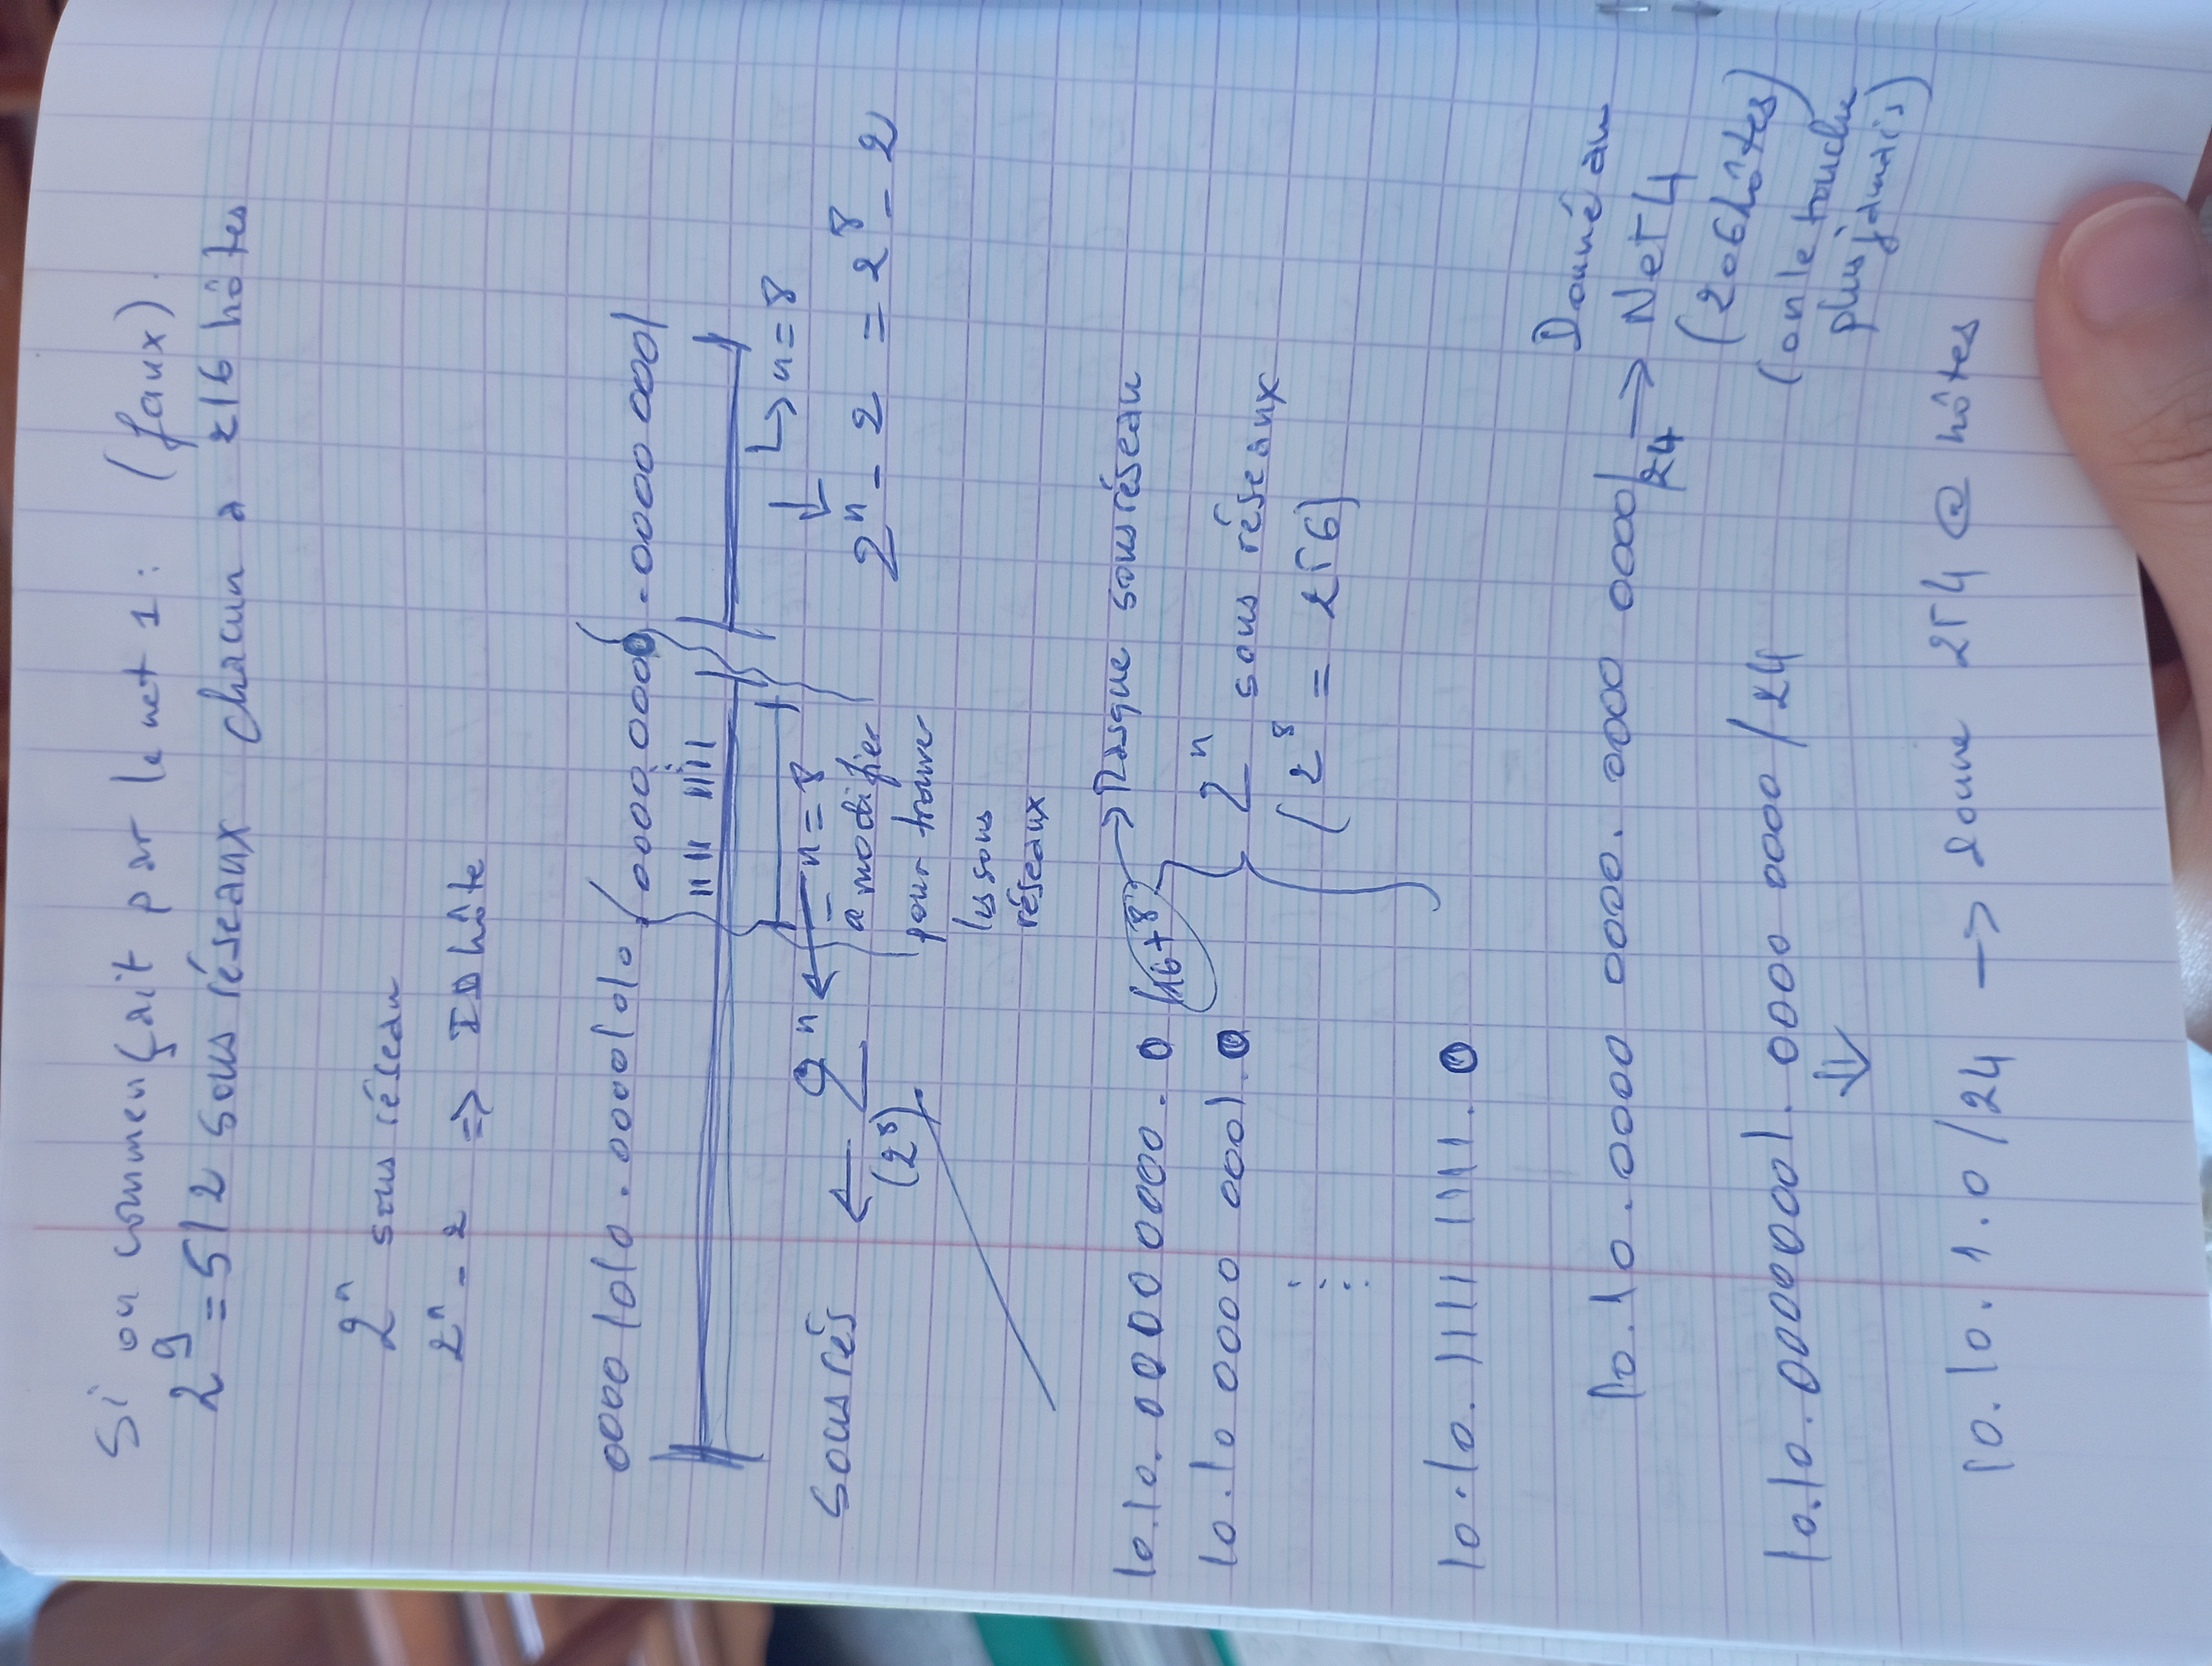 Si on commençait par le net 1 : (faux).
2^9 = 512 sous réseaux chacun a 216 hôtes
2^n sous réseau
2^n - 2 => ID hôte
0000 1010 . 00001010 / 0000 0000 . 0000 0001
1111 1111
n = 8
sous rés ← 2^n ← n = 8
(2^8)
à modifier
pour trouver
les sous
réseaux
2^n - 2 = 2^8 - 2
10.10. 0000 0000 . 0 /16+8 → Masque sous réseau
10.10 0000 0001.0
2^n sous réseaux
(2^8 = 256)
⋮
10.10. 1111 1111. 0
10.10.0000 0000. 0000 0000/24 → Donné au
Net 4
(206 hôtes)
(on le touche
plus jamais)
10.10.00000001. 0000 0000 /24
⇓
10.10.1.0/24 → donne 254 @ hôtes